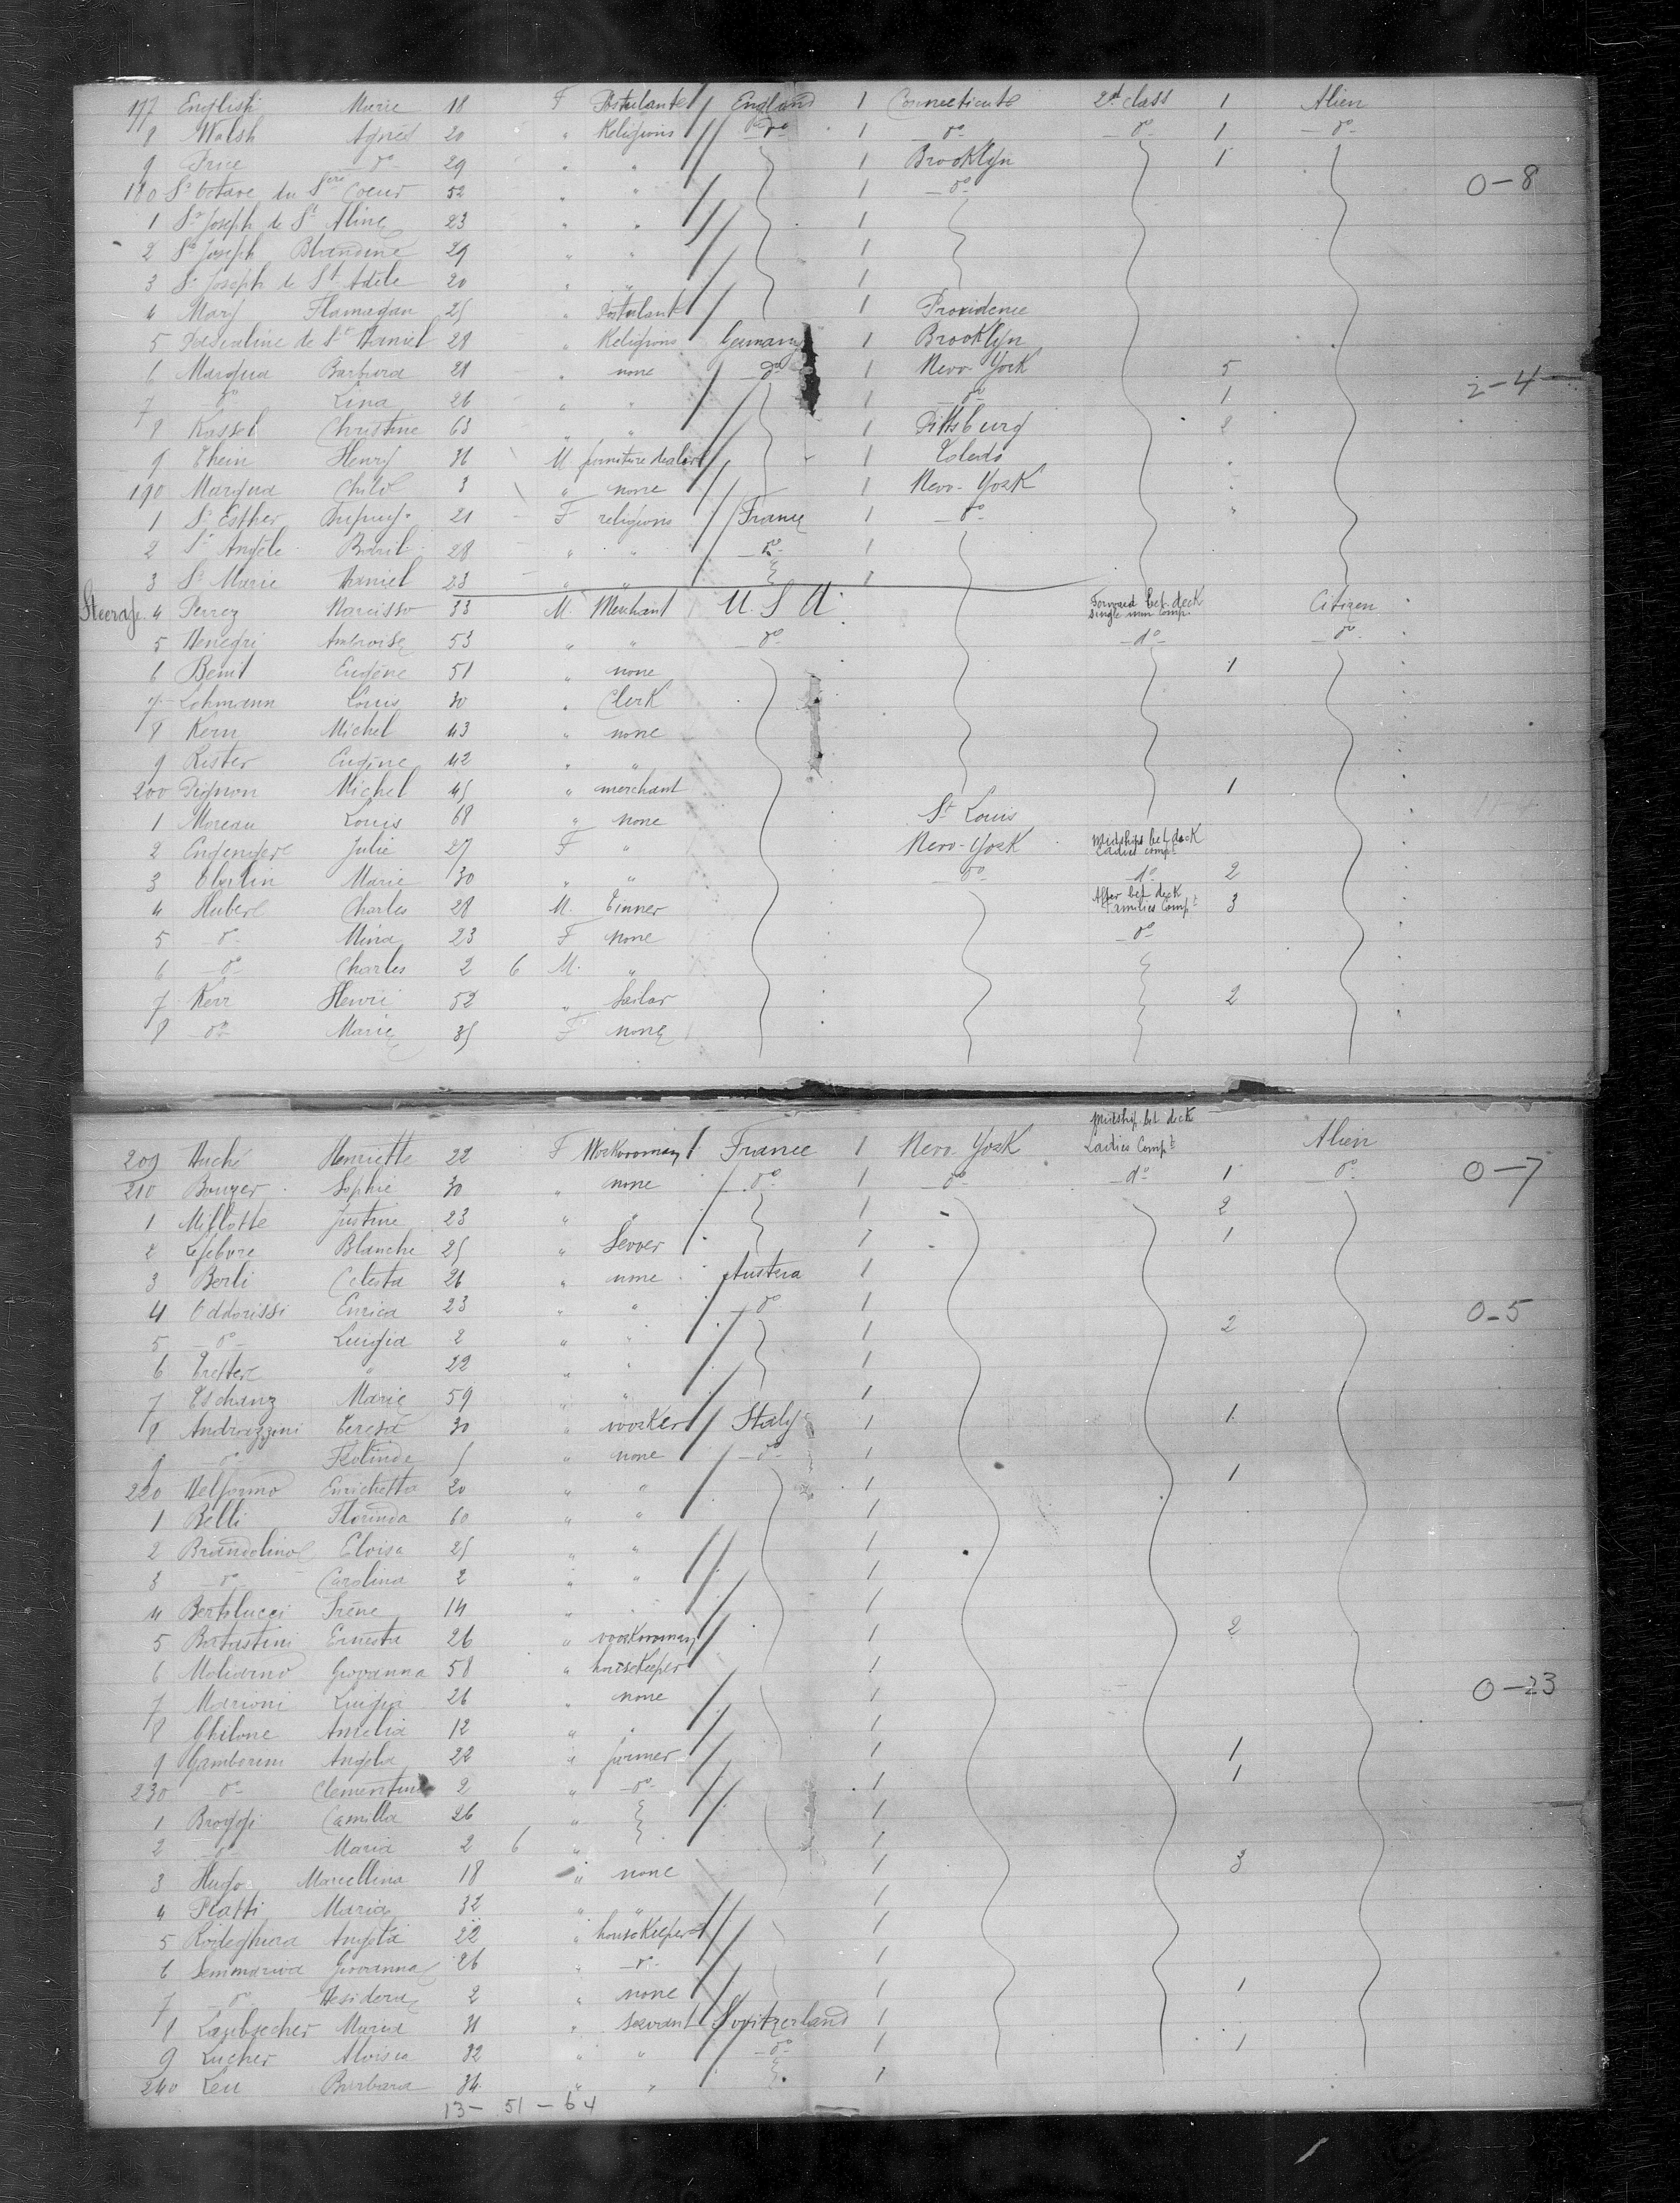 177 English Marie 18 F Postulante England 1 Connecticute 2d class 1 Alien
8 Walsh Agnès 20 " Religious do 1 do do 1 do
9 do 29 " " 1 Brooklyn 1
180 Sr Octave du Scré Coeur 52 " " 1 do 0-8
1 Sr Joseph de St Aline 23 " " 1
2 Sr Joseph Blandine 29 " " 1
3 Sr Joseph de St Adèle 20 " " 1
4 Mary Flamagan 25 " Postulant 1 Providence
5 Pascaline de St Daniel 28 " Religious Germany 1 Brooklyn
6 Marqua Barbara 21 " none do 1 New-York 5
7 do Lina 26 " " 1 do 1 2-4
8 Kassel Christine 63 " " 1 Pittsburg 2
9 Thein Henry 36 M furniture dealer 1 Toledo
190 Marqua Child 3 " none 1 New-York
1 Sr Esther 21 F religious France 1 do
2 Sr Angèle Baril 28 " " do 1
3 Sr Marie Daniel 23 " " 1
Steerage. 4 Perrez Narcisso 33 M. Merchant U.S.A. Forward bet. deck single men comp. Citizen
5 Denegri Ambroise 53 " " do do do
6 Benit Eugène 51 " none 1
7 Lohmann Louis 30 " Clerk
8 Kern Michel 43 " none
9 Rister Eugène 42 " "
200 Pignon Michel 45 " merchant 1
1 Moreau Louis 68 " none St Louis
2 Julie 27 F " New-York Midships bet deck Ladies compt
3 Oberlin Marie 30 " " do do 2
4 Huberl Charles 28 M. Tinner After bet deck Families Compt 3
5 do Mina 23 F none do
6 do Charles 2 6 M. "
7 Kerr Henri 52 " Sailor 2
8 do Marie 35 F none
209 Huché Henriette 22 F Workwoman France 1 New-York Midship bet deck Ladies Compt Alien
210 Bouyer Sophie 30 " none do 1 do do 1 do 0-7
1 Millotte Justine 23 " " 1 2
2 Lefebvre Blanche 25 " Sewer 1 1
3 Berli Celesta 26 " none Austria 1
4 Oddorissi Enrica 23 " " do 1 0-5
5 do Luigia 2 " " 1 2
6 " 22 " " 1
7 Tschanz Marie 59 " " 1
8 Andreazzini Teresa 30 " worker Italy 1 1
9 do 5 " none do 1
220 Enrichetta 20 " " 1 1
1 Belli Florinda 60 " " 1
2 Brandolinol Eloisa 25 " " 1
3 do Carolina 2 " " 1
4 Bertolucci Irène 14 " " 1
5 Batastini Ernesta 26 " workwoman 1 2
6 Molidrno Giovanna 58 " housekeeper 1
7 Marioni Luigia 26 " none 1 0-23
8 Ghilone Amelia 12 " " 1
9 Gamborini Angela 22 " farmer 1 1
230 do Clementine 2 " do 1 1
1 Broggi Camilla 26 " 1
2 do Maria 2 6 " 1
3 Hugo Marcellina 18 " none 1 3
4 Platti Maria 32 " " 1
5 Rodeghiera Angela 22 " housekeeper 1
6 Semmariva Giovanna 26 " do 1
7 do Desidera 2 " none 1 1
8 Laubscher Maria 31 " servant Switzerland 1
9 Lucher Aloisia 32 " " do 1 1
240 Leu Barbara 34 " " 1
13- 51 - 64